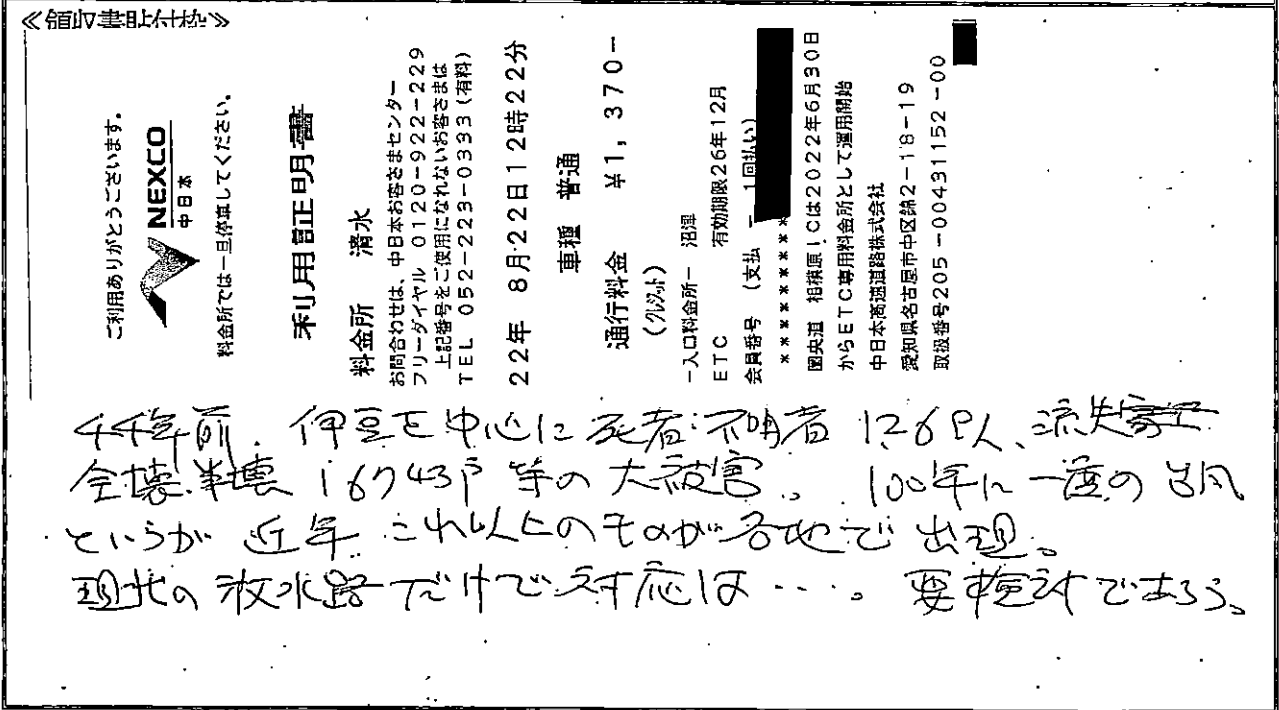 ≪領収書貼付枠≫
ご利用ありがとうございます。
NEXCO
中日本
料金所では一旦停車してください。
利用証明書
料金所 清水
お問合わせは、中日本お客さまセンター
フリーダイヤル 0120-922-229
上記番号をご使用になれないお客さまは
TEL 052-223-0333(有料)
22年 8月22日12時22分
車種 普通
通行料金 ¥1,370-
(クレジット)
-入口料金所- 沼津
ETC 有効期限26年12月
会員番号 (支払 - 1回払い)
**********
圏央道 相模原ICは2022年6月30日
からETC専用料金所として運用開始
中日本高速道路株式会社
愛知県名古屋市中区錦2-18-19
取扱番号205-00431152-00
年前. 伊豆を中心に死者・不明者 1269人、流失
全壊.半壊 16743戸 等の大被害。100年に一度の台風
というが 近年 これ以上のものが各地で出現。
現状の放水路だけで対応は・・・。要検討であろう。